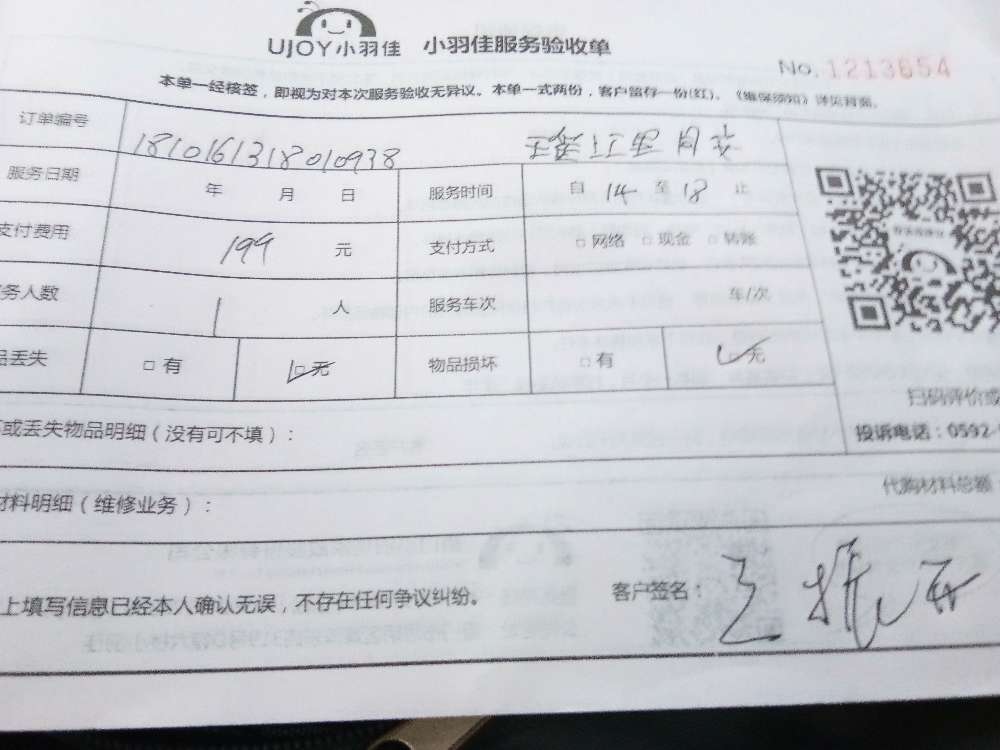 UJOY小羽佳 小羽佳服务验收单
No. 1213654
本单一经核签，即视为对本次服务验收无异议。本单一式两份，客户留存一份(红)。《维保须知》详见背面。
订单编号 1810161318010938
服务日期 年 月 日 服务时间 自 14 至 18 止
支付费用 199 元 支付方式 □ 网络 □ 现金 □ 转账
务人数 1 人 服务车次 车/次
品丢失 □ 有 □ 无 物品损坏 □ 有 □ 无
扫码评价或
或丢失物品明细（没有可不填）：
投诉电话：0592-
材料明细（维修业务）：
代购材料总额
上填写信息已经本人确认无误，不存在任何争议纠纷。
客户签名：